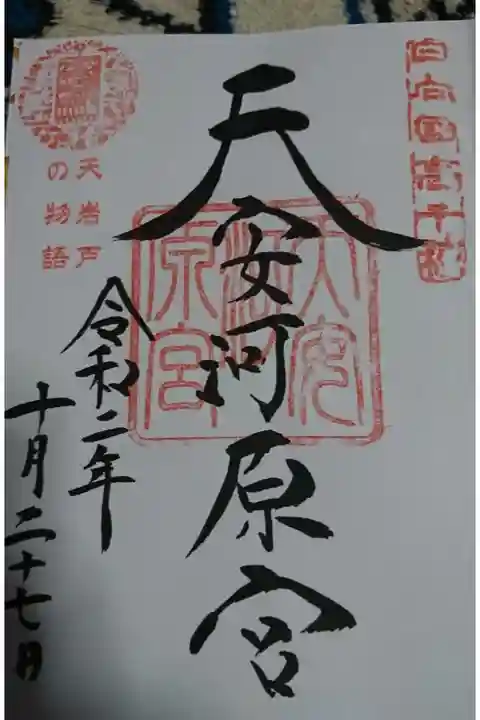 日向国高千穂
天安河原宮
天安
河
原宮
天岩戸
の物語
令和二年
十月二十七日